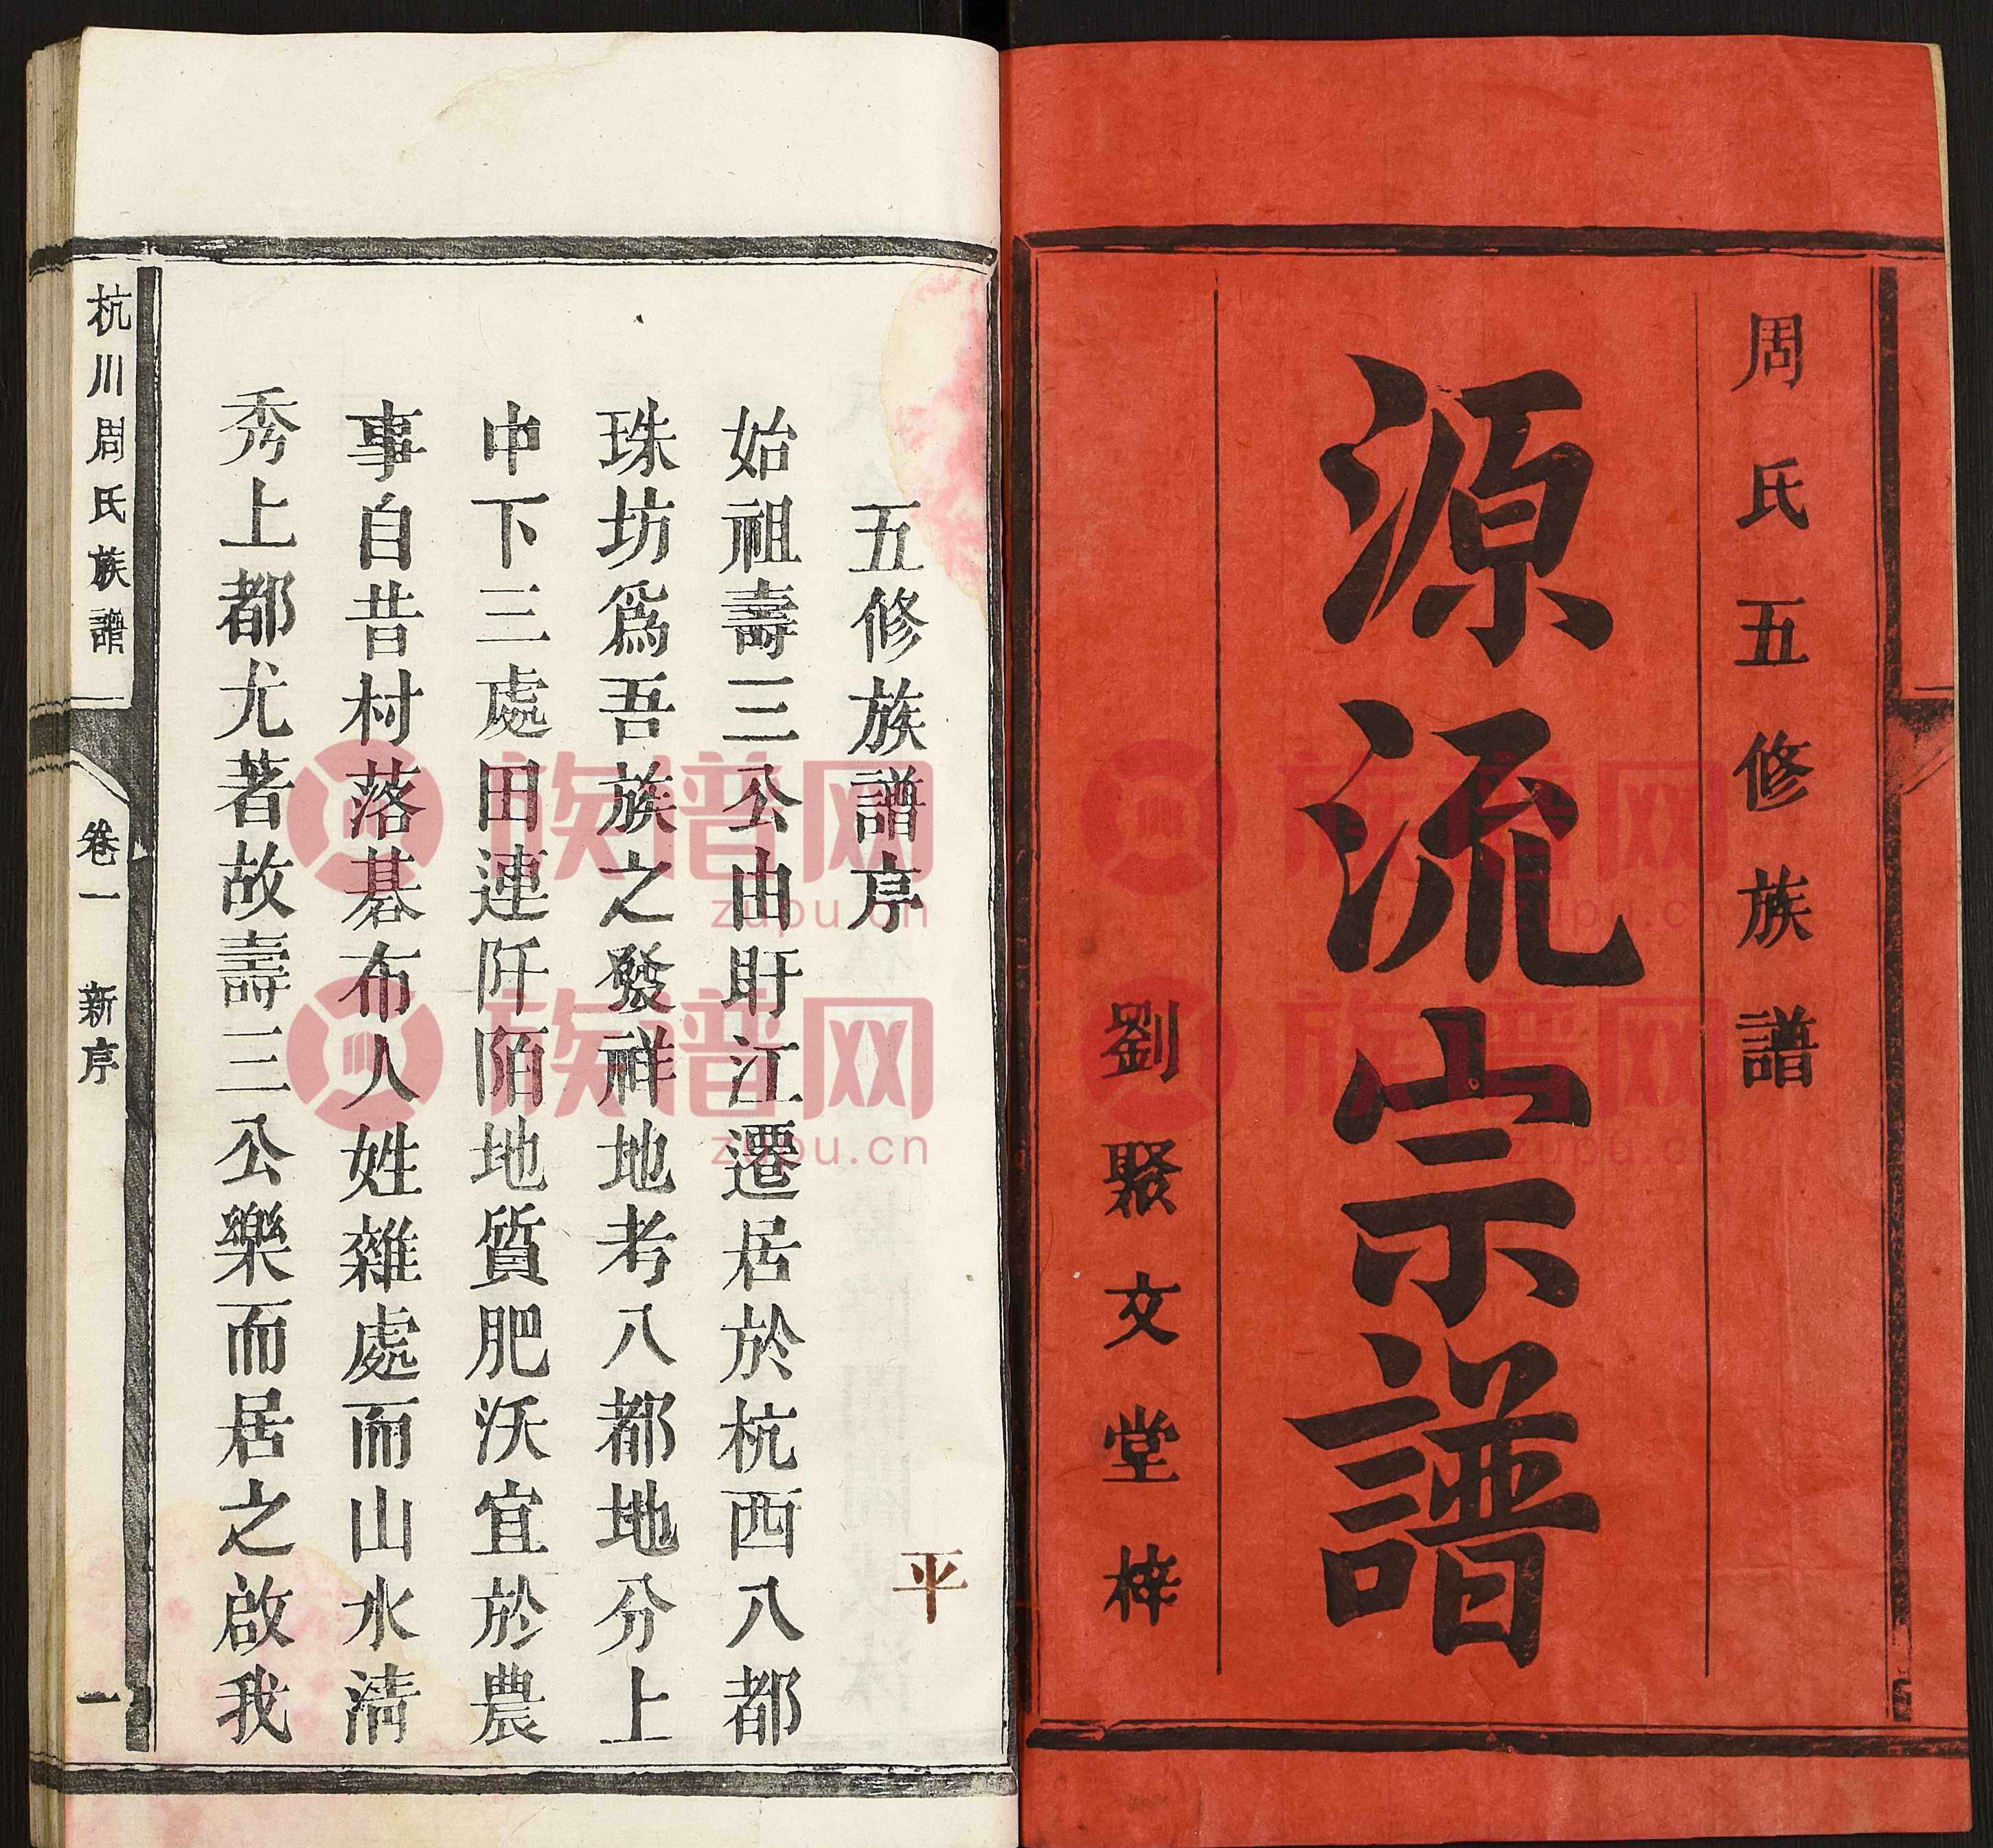 周氏五修族譜
源流宗譜
劉聚文堂梓
五修族譜序
平
始祖壽三公由盱江遷居於杭西八都
珠坊爲吾族之發祥地考八都地分上
中下三處田連阡陌地質肥沃宜於農
事自昔村落碁布人姓雜處而山水淸
秀上都尤著故壽三公樂而居之啟我
杭川周氏族譜
卷一
新序
一
族谱网
zupu.cn
族谱网
zupu.cn
族谱网
zupu.cn
族谱网
zupu.cn